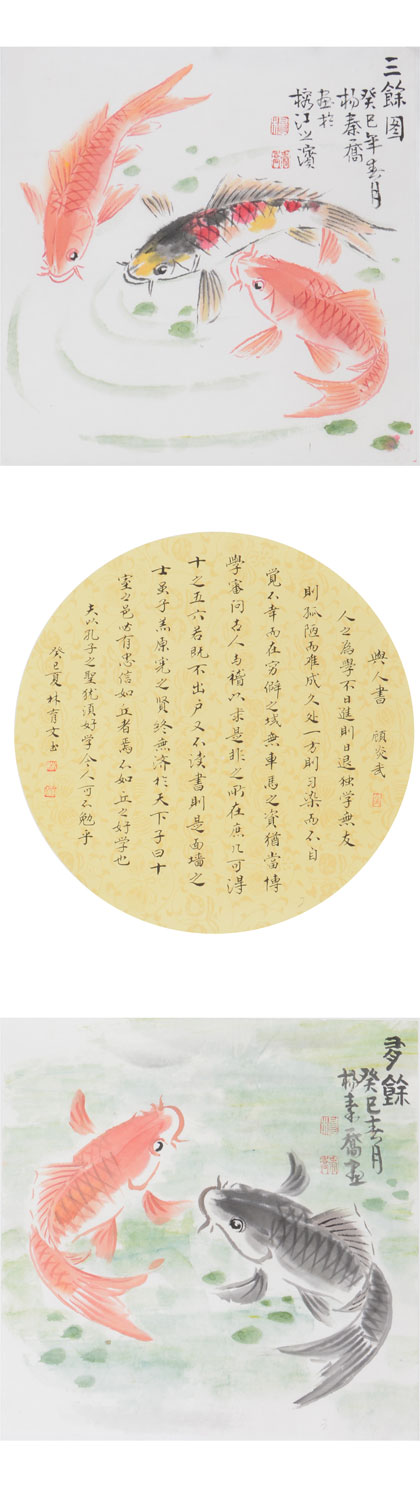 三餘图
癸巳年春月
杨素喬
画於
榕江之濱
與人書 顧炎武
人之為學不日進則日退独学無友
則孤陋而难成久处一方則习染而不自
覚不幸而在穷僻之域無車馬之資猶當博
學審问古人与稽以求是非之所在庶几可得
十之五六若既不出户又不读書則是面墙之
士虽子羔原宪之贤终無济於天下子曰十
室之邑必有忠信如丘者焉不如丘之好学也
夫以孔子之聖犹須好学今人可不勉乎
癸巳夏林育文书
多餘
癸巳春月
杨素喬画